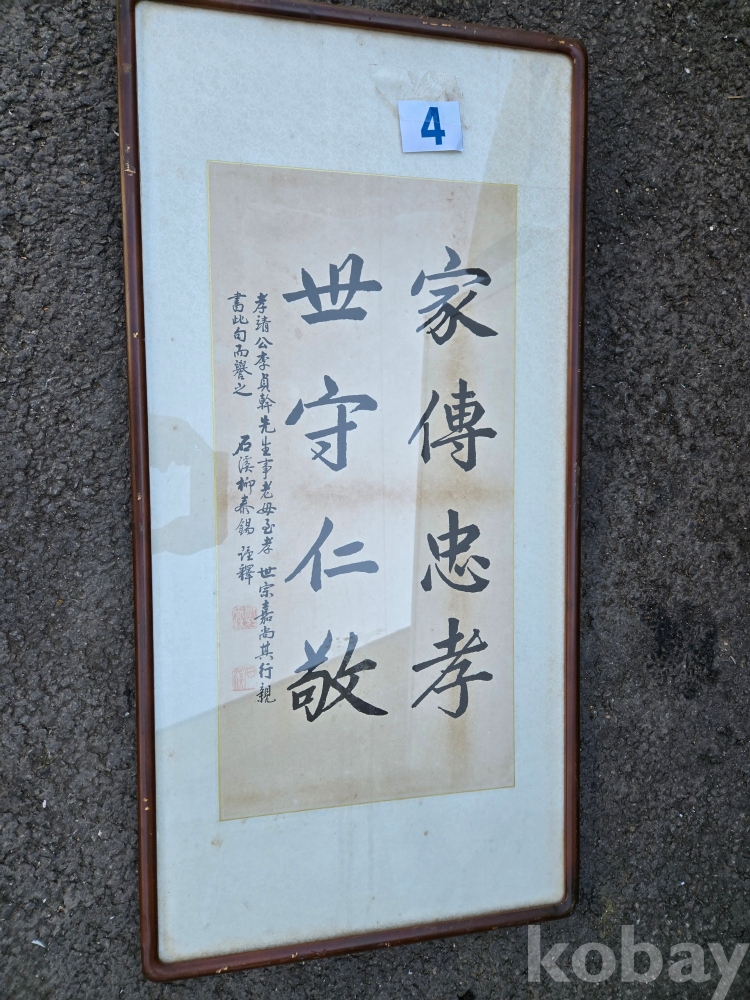 4
家傳忠孝
世守仁敬
孝靖公李貞幹先生事老母至孝 世宗嘉尚其行親
書此句而譽之 石溪柳泰錫 謹釋
kobay